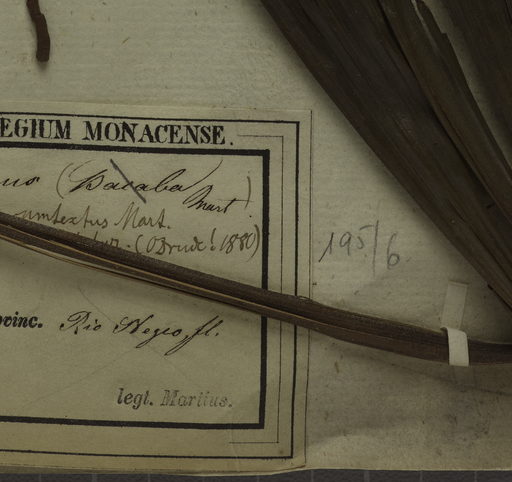 EGIUM MONACENSE.
(Bacaba Mart)
Mart.
(ODrude! 1880)
195/6
ovinc. Rio Negro fl.
legt. Martius.